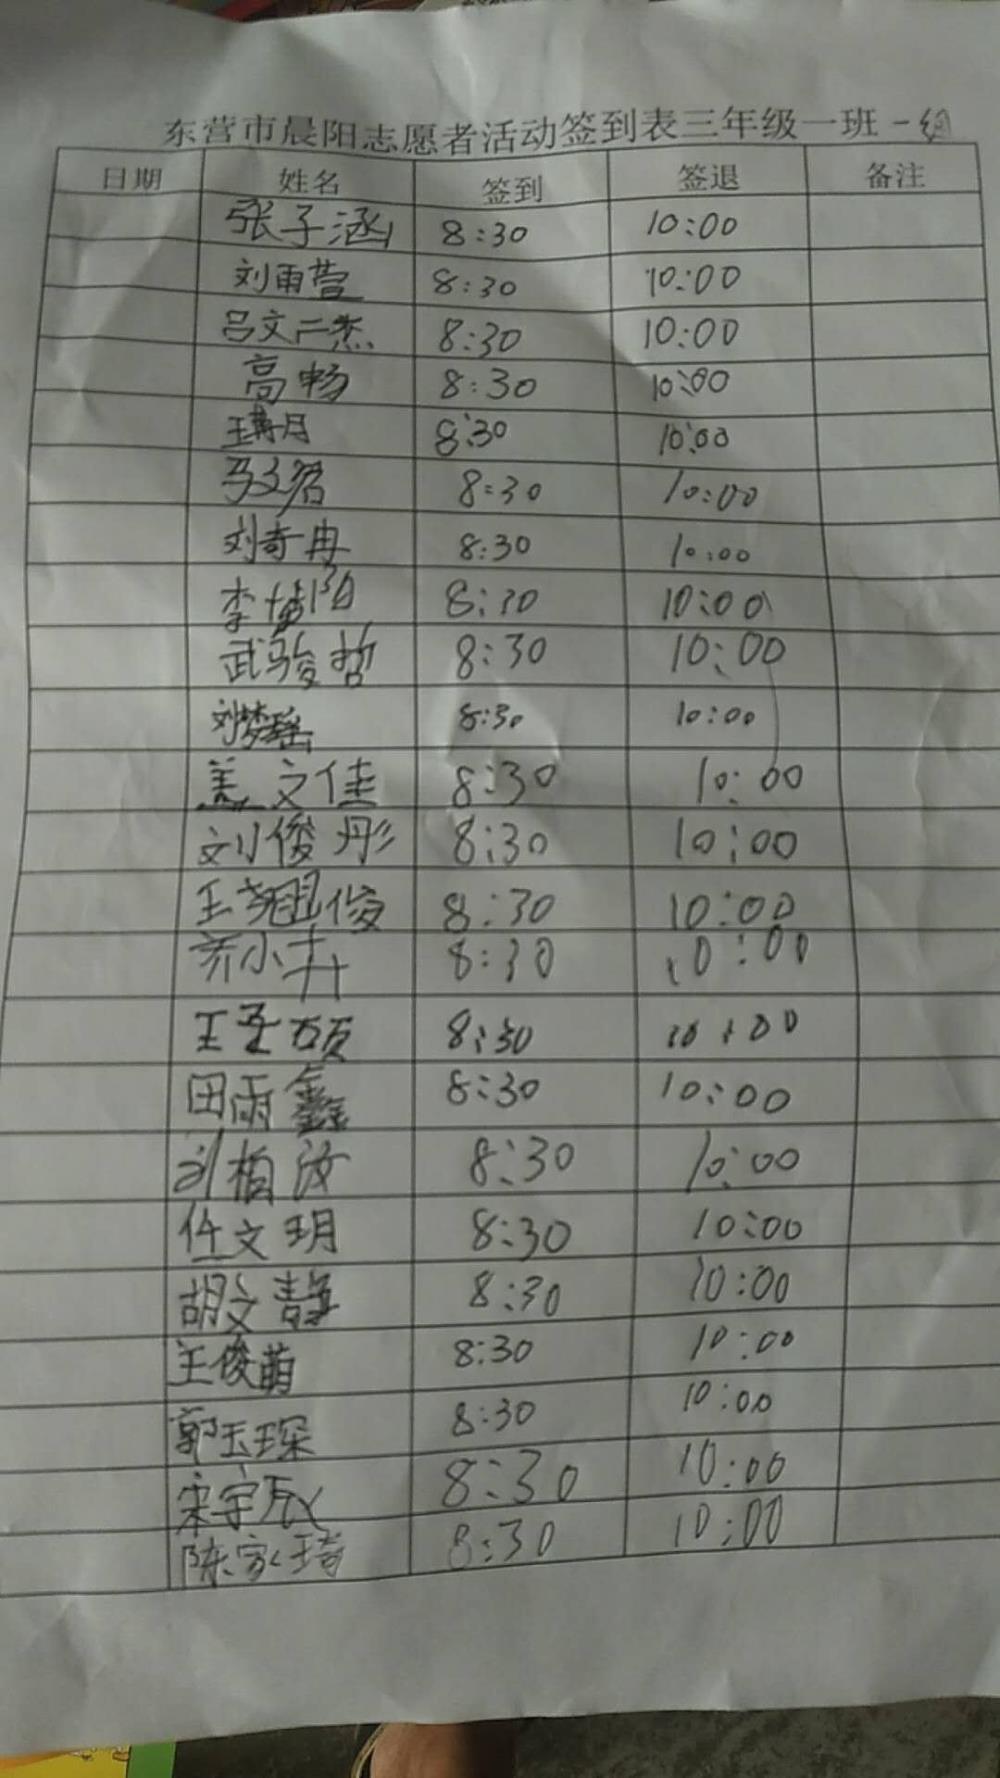 东营市晨阳志愿者活动签到表三年级一班一组
日期 姓名 签到 签退 备注
张子涵 8:30 10:00
刘雨萱 8:30 10:00
吕文杰 8:30 10:00
高畅 8:30 10:00
8:30 10:00
马文君 8:30 10:00
刘奇冉 8:30 10:00
李 阳 8:30 10:00
武骏哲 8:30 10:00
刘梦瑶 8:30 10:00
盖文佳 8:30 10:00
刘俊彤 8:30 10:00
王 俊 8:30 10:00
乔小卉 8:30 10:00
王 硕 8:30 10:00
田雨鑫 8:30 10:00
刘柏汝 8:30 10:00
任文玥 8:30 10:00
胡文静 8:30 10:00
王俊萌 8:30 10:00
郭玉琛 8:30 10:00
宋宇辰 8:30 10:00
陈家琦 8:30 10:00